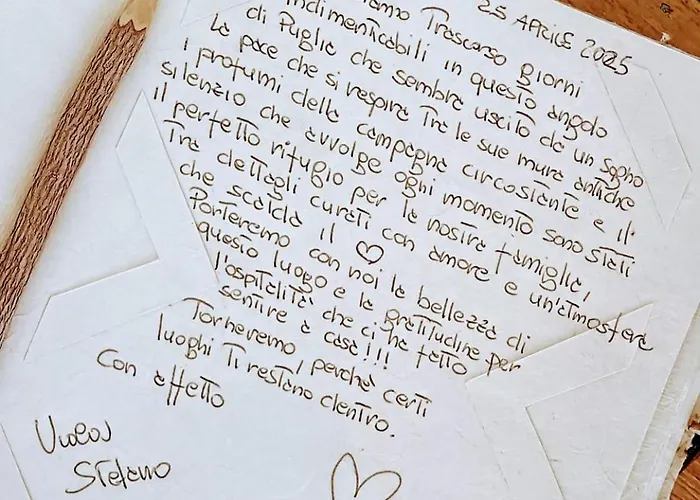 25 APRILE 2025
Trascorso giorni
indimenticabili in questo angolo
di Puglia che sembra uscito da un sogno
La pace che si respira Tra le sue mura antiche
i profumi della campagna circostante e il
silenzio che avvolge ogni momento sono stati
il perfetto rifugio per la nostra famiglia,
Tra dettagli curati con amore e un'atmosfera
che scalda il ♡
Porteremo con noi la bellezza di
questo luogo e la gratitudine per
l'ospitalità che ci ha fatto
sentire a casa!!!
Torneremo, perchè certi
luoghi Ti restano dentro.
Con affetto
Stefano